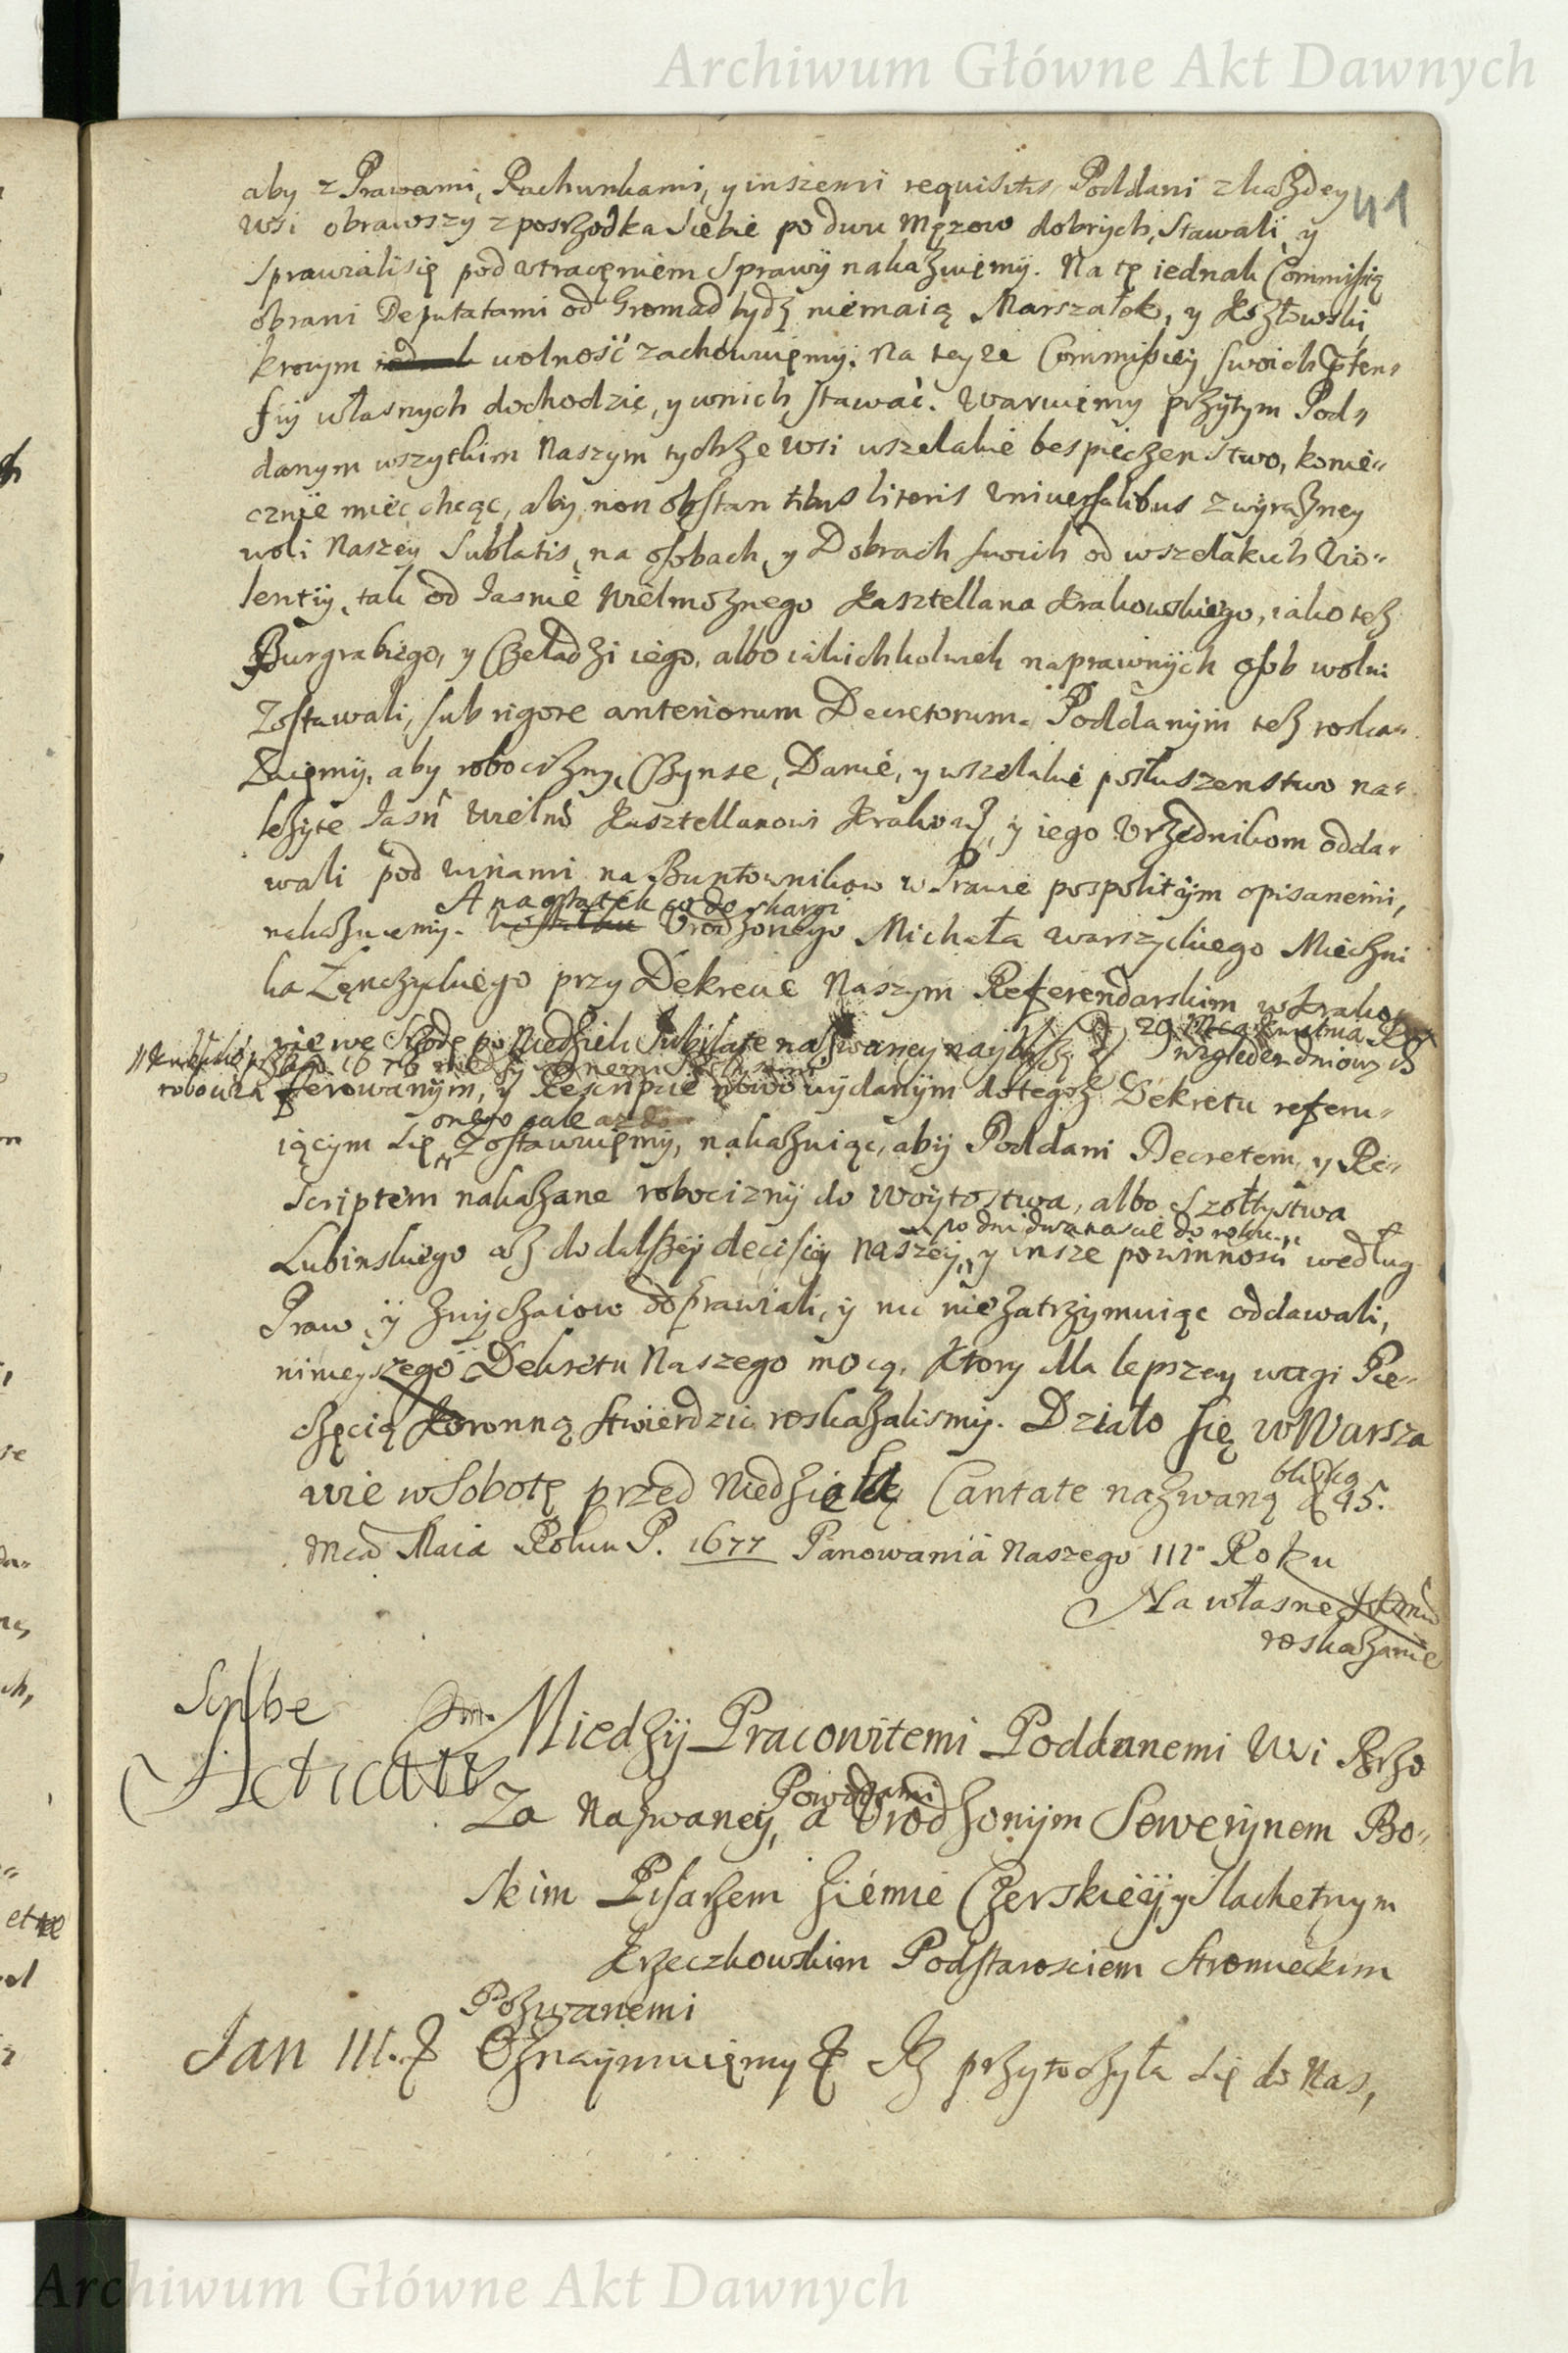 Archiwum Główne Akt Dawnych
41
aby z Prawami, Rachunkami, y inszemi requisitis Poddani z kazdey
wsi obrawszy z posrzodka siebie po dwu Męzow dobrych, stawali, y
sprawiali się pod vtracęniem sprawy nakazuięmy. Na tę iednak Commissią
obrani Deputatami od Gromad bydz niemaią Marszałek, y Kozłowski,
ktorym wolność zachowuięmy, na teyze Commissiey swoich Prten,,
siy własnych dochodzić, y w nich stawać. Waruięmy przytym Pod,,
danym wszytkim Naszym tychze wsi wszelakie bespieczenstwo, konie,,
cznie mieć chcąc, aby non obstantibus literis Vniuersalibus z wyrazney
woli Naszey sublatis, na osobach, y Dobrach swoich od wszelakich Vio,,
lentiy, tak od Jasnie Wielmoznego Kasztellana Krakowskiego, iako tez
Burgrabiego, y Czeladzi iego, albo iakichkolwiek naprawnych osob wolni
zostawali, sub rigore anteriorum Decretorum. Poddanym tez roska,,
zuięmy, aby robocizny, Czynsze, Danie, y wszelakie posłuszenstwo na,,
lezyte Jasn Wielmo Kasztellanowi Krakow, y iego Vrzędnikom odda,,
wali pod winami na Buntownikow w Prawie pospolitym opisanemi,
A na ostatek co do skargi
nakazuięmy. Vrodzonego Michała Warszyckiego Mieczni
ka Łęnczyckiego przy Dekrecie Naszym Referendarskim w Krako
wie we Srodę po Niedzieli Jubilate nazwaney naybliz
względem dniowych
robocizn ferowanym, y Rescripcie nowo wydanym do tegoz Dekretu referu,,
onego cale
iącym się zostawuięmy, nakazuiąc, aby Poddani Decretem, y Re,,
scriptem nakazane robocizny do Woytostwa, albo Szołtystwa
po dni dwanascie do roku
Lubinskiego az do dalszey decisiey naszey, y insze powinnosci według
Praw y zwyczaiow odprawiali, y nic niezatrzymuiąc oddawali,
ninieyszego Dekretu Naszego mocą. Ktory dla lepszey wagi Pie,,
częcią Koronną stwierdzić roskazalismy. Działo się w Warsza
wie w Sobotę przed Niedzielą Cantate nazwaną bliską d 15.
Mca Maia Roku P. 1677 Panowania Naszego III Roku
Na własne
roskazanie
Scribe
Acticatt
Miedzy Pracowitemi Poddanemi Wsi
za Nazwaney, Powodami a Vrodzonym Sewerynem Bo,,
skim Pisarzem Ziemie Czerskiey, y Slachetnym
Krzeczkowskim Podstarosciem Stromieckim
Pozwanemi
Jan III. Oznaymuięmy Iz przytoczyła się do Nas,
Archiwum Główne Akt Dawnych